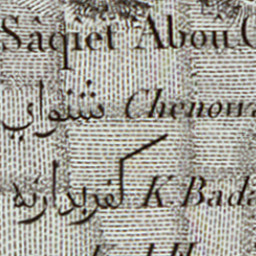 Sâqiet Aboû
شنواي Chenowa
كفر بدارنه K. Bada